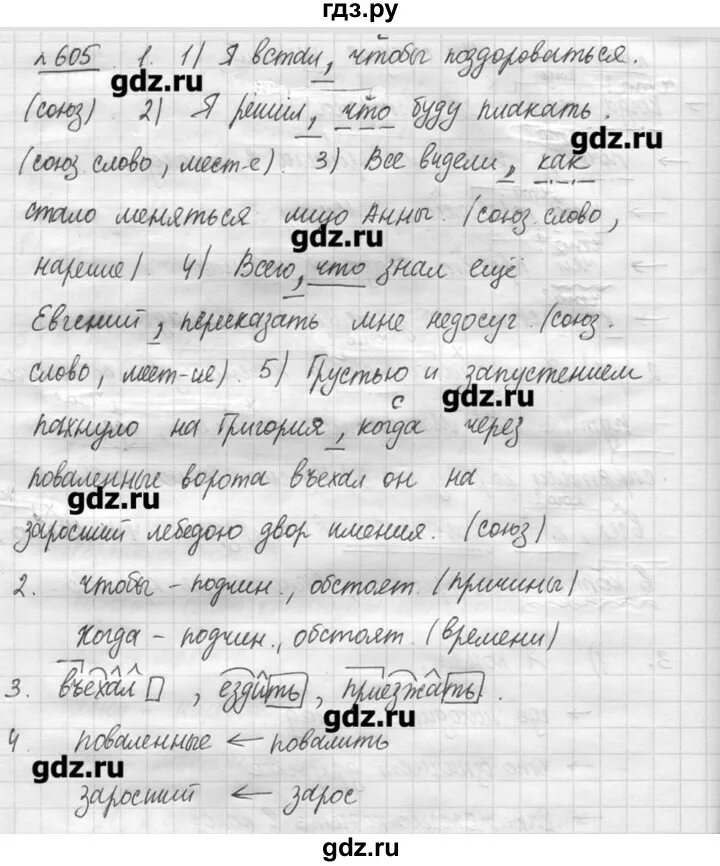 гдз.ру
№605 1. 1) Я встал, чтобы поздороваться.
gdz.ru
(союз) 2) Я решил, что буду плакать.
gdz.ru
(союз. слово, мест-е). 3) Все видели, как
стало меняться лицо Анны. (союз. слово,
gdz.ru
наречие) 4) Всего, что знал ещё
Евгений, пересказать мне недосуг. (союз.
слово, мест-ие). 5) Грустью и запустением
gdz.ru
с
пахнуло на Григория, когда через
поваленные ворота въехал он на
gdz.ru
заросший лебедою двор имения. (союз)
2. чтобы - подчин., обстоят. (причины)
Когда - подчин., обстоят. (времени)
3. въехал, ездить, приезжать.
gdz.ru
4. поваленные ← повалить
gdz.ru
заросший ← зарос
gdz.ru